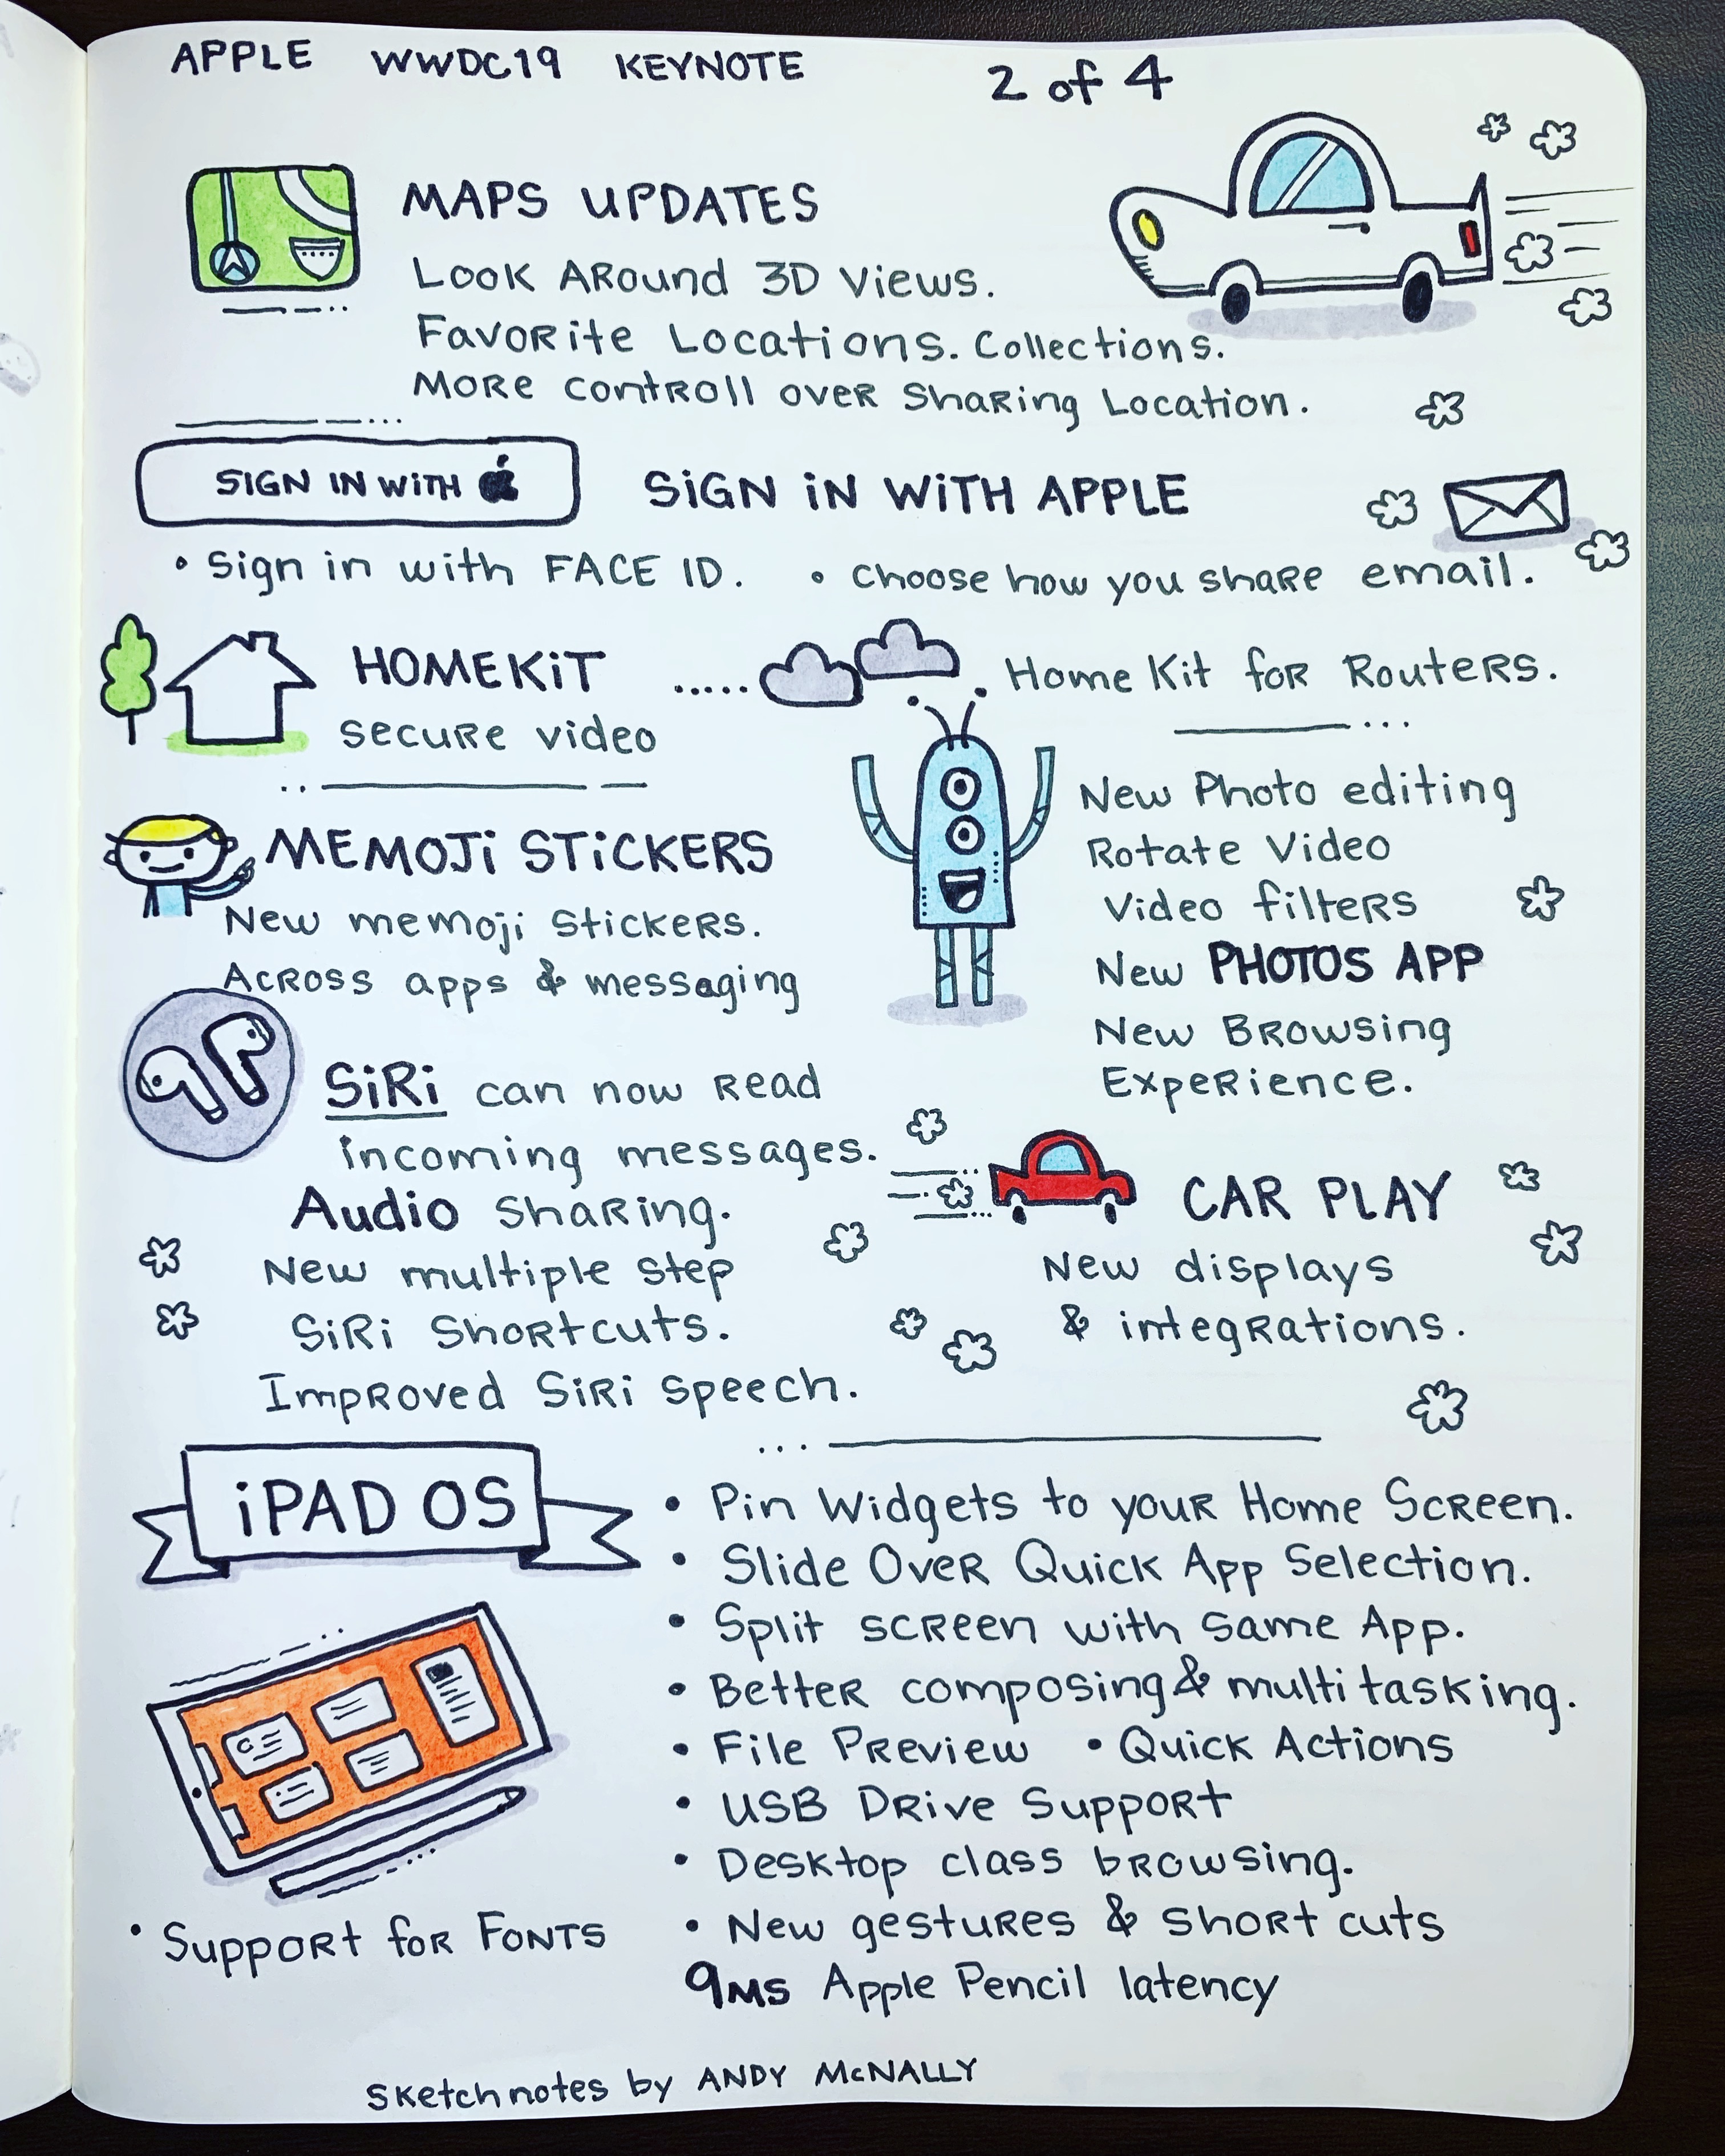 APPLE WWDC19 KEYNOTE 2 of 4
MAPS UPDATES
Look Around 3D Views.
Favorite Locations. Collections.
More controll over Sharing Location.
SIGN IN WITH
SIGN IN WITH APPLE
• Sign in with FACE ID. • Choose how you share email.
HOMEKIT
secure video
Home Kit for Routers.
MEMOJI STICKERS
New memoji Stickers.
Across apps & messaging
New Photo editing
Rotate Video
Video filters
New PHOTOS APP
New Browsing
Experience.
SiRi can now Read
incoming messages.
Audio Sharing.
New multiple step
SiRi Shortcuts.
Improved SiRi speech.
CAR PLAY
New displays
& integrations.
iPAD OS
• Pin Widgets to your Home Screen.
• Slide Over Quick App Selection.
• Split screen with same App.
• Better composing & multitasking.
• File Preview • Quick Actions
• USB Drive Support
• Desktop class browsing.
• New gestures & short cuts
9MS Apple Pencil latency
• Support for FONTS
Sketchnotes by ANDY McNALLY